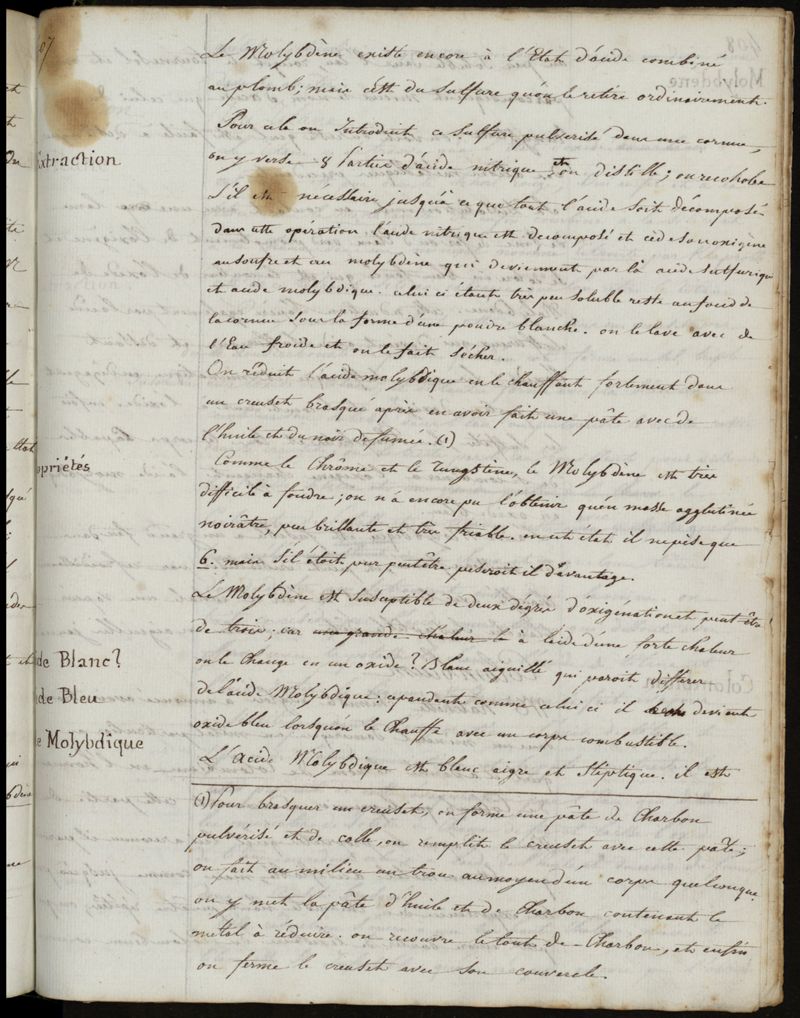 Le Molybdène existe encore à l'Etat d'acide combiné
au plomb; mais c'est du Sulfure qu'on le retire ordinairement.
Pour cela on Introduit ce Sulfure pulverisé dans une cornue,
Extraction
on y verse 8 Parties d'acide nitrique, et on distille; on recohobe
S'il est nécessaire jusqu'à ce que tout l'acide soit décomposé
dans cette opération l'acide nitrique est decomposé et cède son oxigène
au soufre et au molybdène qui deviennent par là acide Sulfurique
et acide molybdique. celui ci étant très peu soluble reste au fond de
la cornue sous la forme d'une poudre blanche. on le lave avec de
l'Eau froide et on le fait sécher.
On réduit l'acide molybdique en le chauffant fortement dans
un creuset brasqué après en avoir fait une pâte avec de
l'huile et du noir de fumée. (1)
opriétés
Comme le Chrôme et le Tungstène, le Molybdène est très
difficile à fondre; on n'a encore pu l'obtenir qu'en masse agglutinée
noirâtre, peu brillante et très friable. en cet état il ne pèse que
6. mais s'il étoit pur peutêtre peseroit il d'avantage.
Le Molybdène est Susceptible de deux dégrés d'oxigénation et peut-être
de trois; car une grande chaleur le à l'aide d'une forte chaleur
de Blanc?
on le change en un oxide? Blanc aiguillé qui paroit différer
de Bleu
de l'acide Molybdique; cependant comme celui ci il devient
oxide bleu lorsqu'on le Chauffe avec un corps combustible.
e Molybdique
L'acide Molybdique est blanc aigre et Stiptique. il est
(1) Pour brasquer un creuset, on forme une pâte de Charbon
pulvérisé et de colle, on remplit le creuset avec cette pâte;
on fait au milieu un trou au moyen d'un corps quelconque,
on y met la pâte d'huile et de Charbon contenant le
métal à réduire. on recouvre le tout de Charbon, et enfin
on ferme le creuset avec son couvercle.